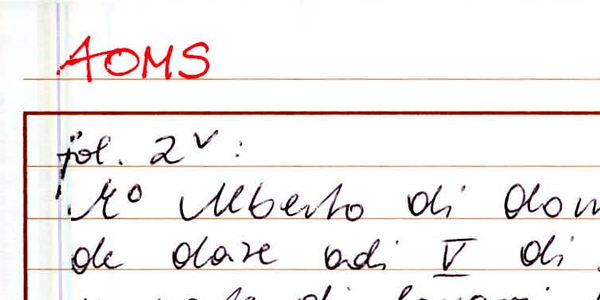 AOMS
fol. 2v:
Mo Alberto di dom
de dare adi V di